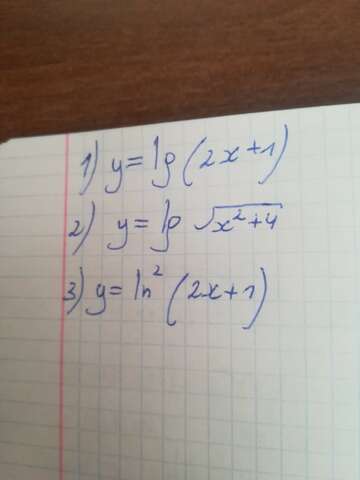 1) y = lg (2x+1)
2) y = lg √(x²+4)
3) y = ln² (2x+1)